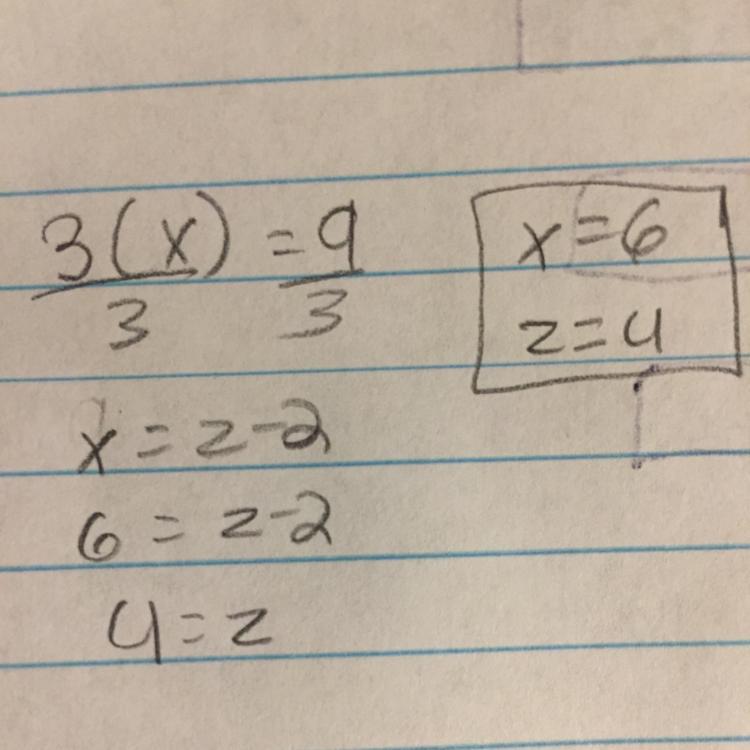 3(x) = 9
3 3
x = z - 2
6 = z - 2
4 = z
x = 6
z = 4